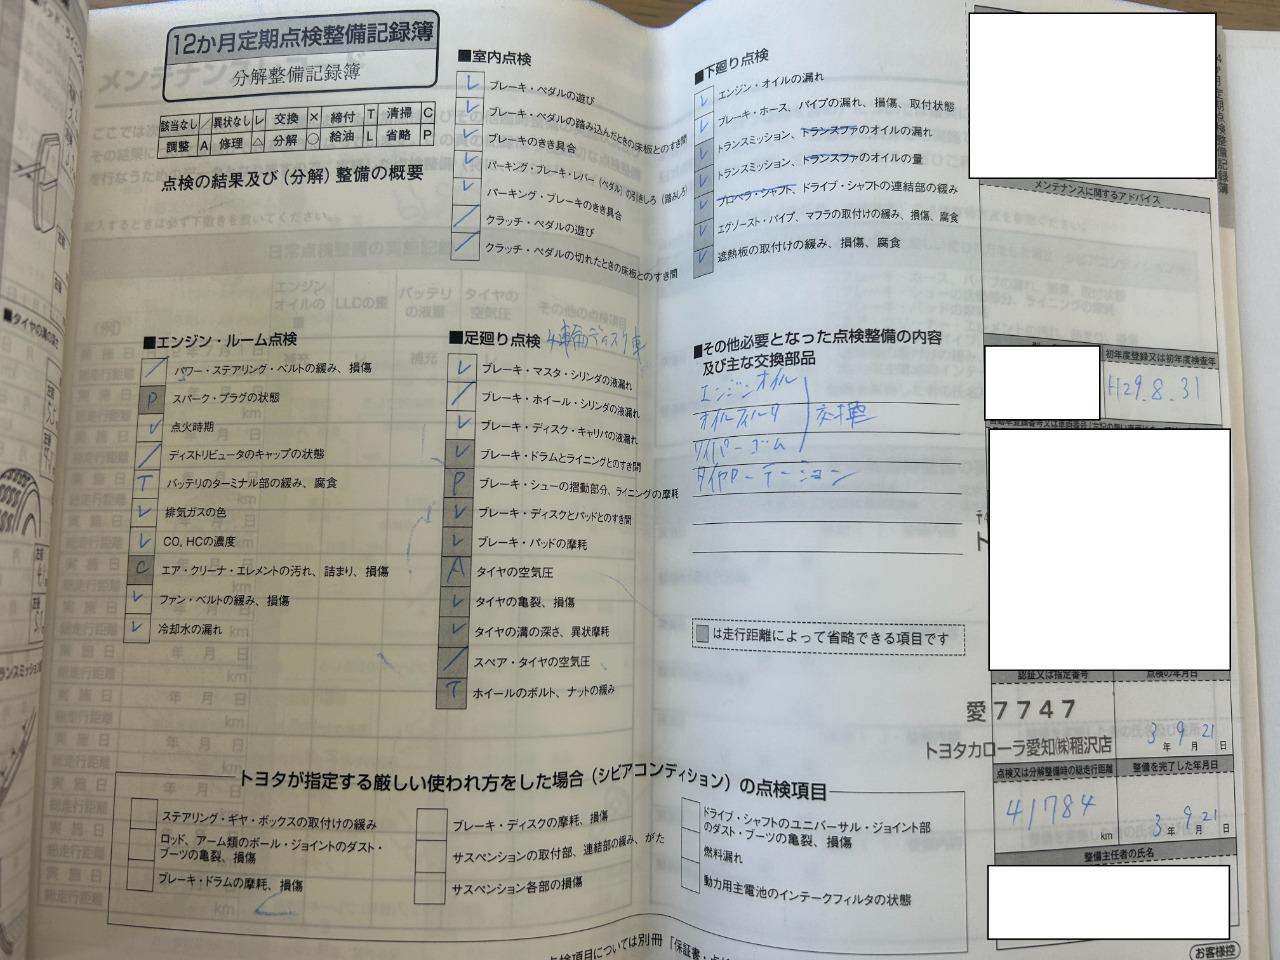 12か月定期点検整備記録簿
分解整備記録簿
該当なし / 異状なし レ 交換 × 締付 T 清掃 C
調整 A 修理 △ 分解 ○ 給油 L 省略 P
点検の結果及び(分解)整備の概要
■室内点検
レ ブレーキ・ペダルの遊び
レ ブレーキ・ペダルの踏み込んだときの床板とのすき間
レ ブレーキのきき具合
レ パーキング・ブレーキ・レバー(ペダル)の引きしろ(踏みしろ)
レ パーキング・ブレーキのきき具合
/ クラッチ・ペダルの遊び
/ クラッチ・ペダルの切れたときの床板とのすき間
■下廻り点検
レ エンジン・オイルの漏れ
レ ブレーキ・ホース、パイプの漏れ、損傷、取付状態
レ トランスミッション、トランスファのオイルの漏れ
レ トランスミッション、トランスファのオイルの量
レ プロペラ・シャフト、ドライブ・シャフトの連結部の緩み
レ エグゾースト・パイプ、マフラの取付けの緩み、損傷、腐食
レ 遮熱板の取付けの緩み、損傷、腐食
■エンジン・ルーム点検
/ パワー・ステアリング・ベルトの緩み、損傷
P スパーク・プラグの状態
レ 点火時期
/ ディストリビュータのキャップの状態
T バッテリのターミナル部の緩み、腐食
レ 排気ガスの色
レ CO, HCの濃度
C エア・クリーナ・エレメントの汚れ、詰まり、損傷
レ ファン・ベルトの緩み、損傷
レ 冷却水の漏れ
■足廻り点検 4輪ディスク車
レ ブレーキ・マスタ・シリンダの液漏れ
/ ブレーキ・ホイール・シリンダの液漏れ
レ ブレーキ・ディスク・キャリパの液漏れ
レ ブレーキ・ドラムとライニングとのすき間
P ブレーキ・シューの摺動部分、ライニングの摩耗
レ ブレーキ・ディスクとパッドとのすき間
レ ブレーキ・パッドの摩耗
A タイヤの空気圧
レ タイヤの亀裂、損傷
レ タイヤの溝の深さ、異状摩耗
/ スペア・タイヤの空気圧
T ホイールのボルト、ナットの緩み
■その他必要となった点検整備の内容
及び主な交換部品
エンジンオイル
オイルフィルタ 交換
ワイパーゴム
タイヤローテーション
は走行距離によって省略できる項目です
メンテナンスに関するアドバイス
初年度登録又は初年度検査年
H29.8.31
認証又は指定番号
愛7747
トヨタカローラ愛知㈱稲沢店
点検の年月日
3年9月21日
点検又は分解整備時の総走行距離
41784 km
整備を完了した年月日
3年9月21日
整備主任者の氏名
お客様控
トヨタが指定する厳しい使われ方をした場合(シビアコンディション)の点検項目
ステアリング・ギヤ・ボックスの取付けの緩み
ロッド、アーム類のボール・ジョイントのダスト・
ブーツの亀裂、損傷
ブレーキ・ドラムの摩耗、損傷
ブレーキ・ディスクの摩耗、損傷
サスペンションの取付部、連結部の緩み、がた
サスペンション各部の損傷
ドライブ・シャフトのユニバーサル・ジョイント部
のダスト・ブーツの亀裂、損傷
燃料漏れ
動力用主電池のインテークフィルタの状態
点検項目については別冊「保証書・点